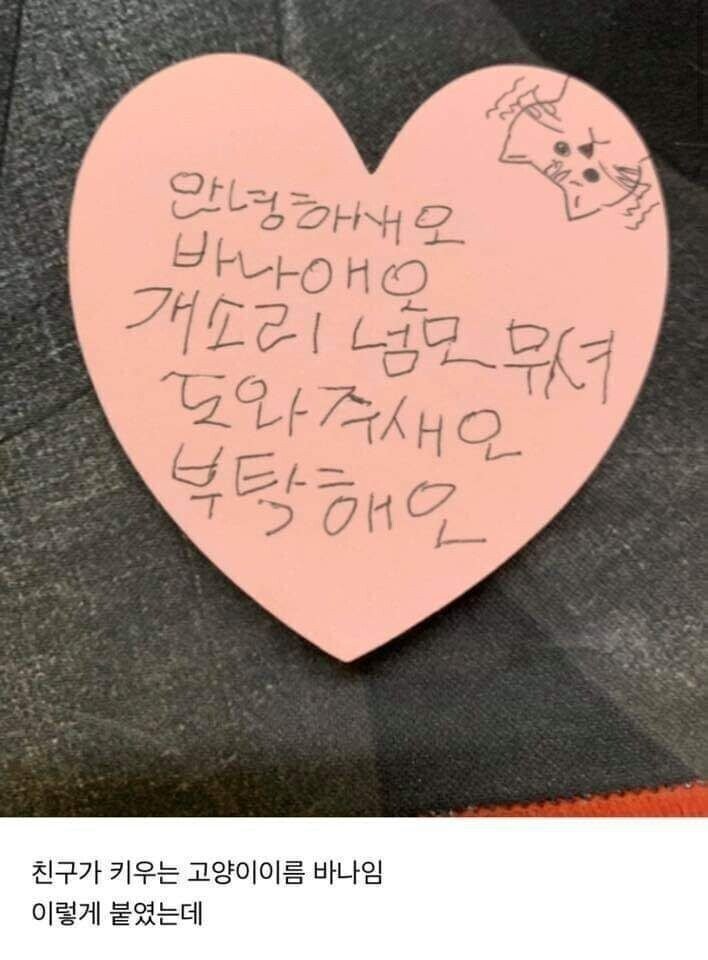 안녕하새오
바나애오
개소리 넘모 무셔
도와주새오
부탁해오
친구가 키우는 고양이이름 바나임
이렇게 붙였는데